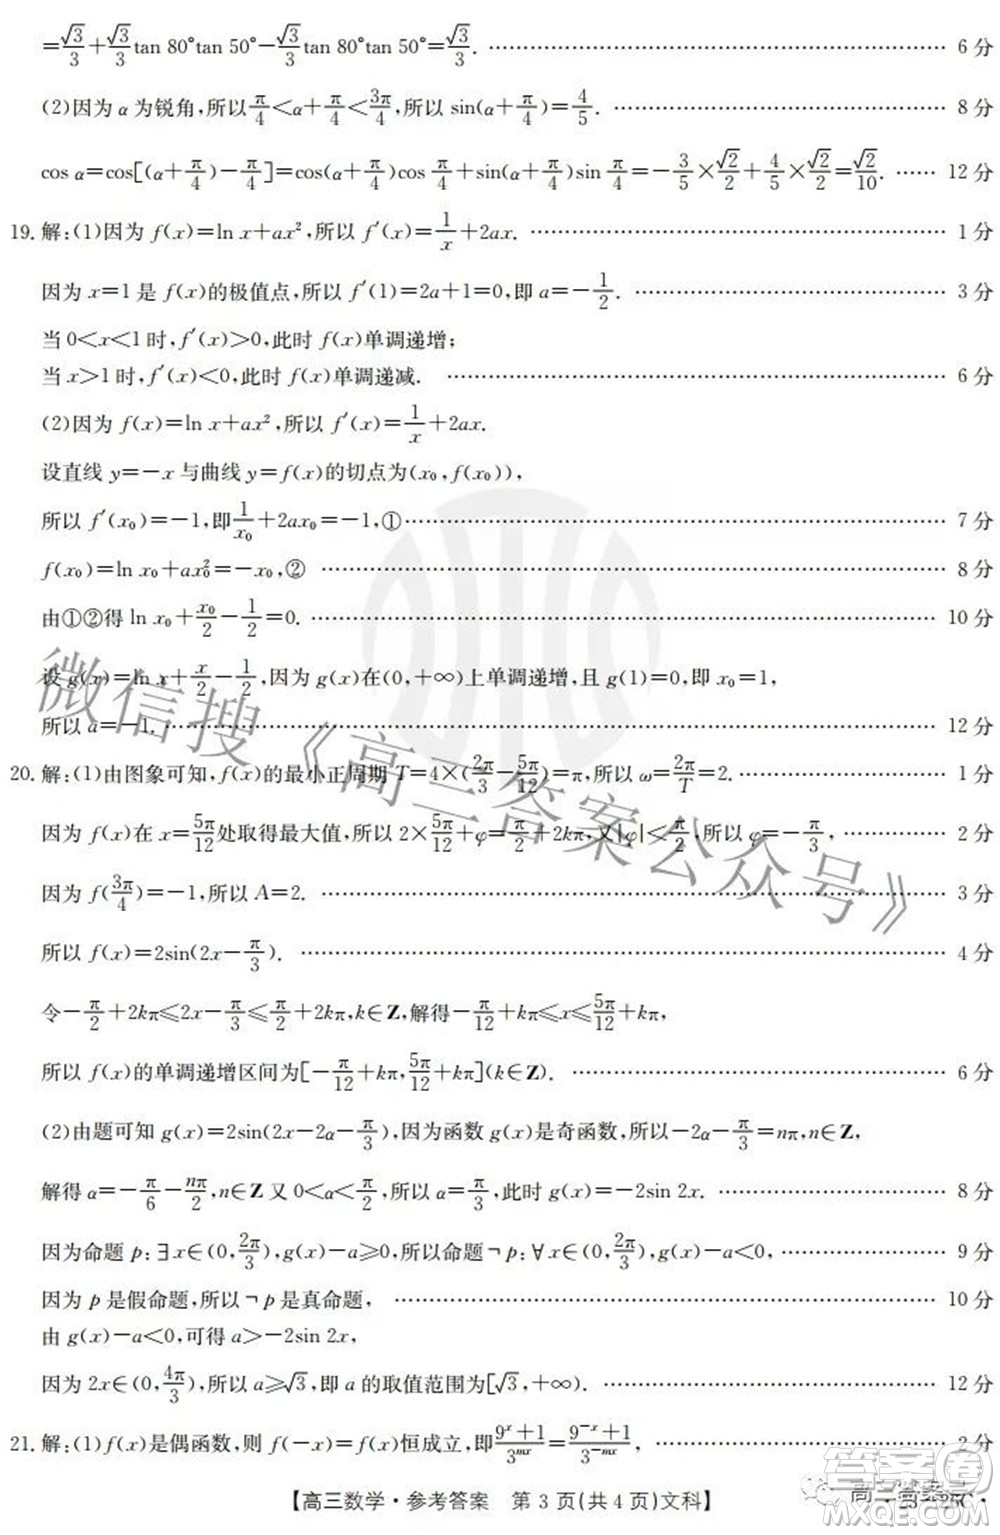 =√3/3+√3/3tan 80°tan 50°−√3/3tan 80°tan 50°=√3/3. ………… 6 分
(2)因为 α 为锐角,所以π/4<α+π/4<3π/4,所以 sin(α+π/4)=4/5. ………… 8 分
cos α=cos[(α+π/4)−π/4]=cos(α+π/4)cos π/4+sin(α+π/4)sin π/4=−3/5×√2/2+4/5×√2/2=√2/10. …… 12 分
19. 解:(1)因为 f(x)=ln x+ax²,所以 f′(x)=1/x+2ax. ………… 1 分
因为 x=1 是 f(x)的极值点,所以 f′(1)=2a+1=0,即 a=−1/2. ………… 3 分
当 0<x<1 时,f′(x)>0,此时 f(x)单调递增;
当 x>1 时,f′(x)<0,此时 f(x)单调递减. ………… 6 分
(2)因为 f(x)=ln x+ax²,所以 f′(x)=1/x+2ax.
设直线 y=−x 与曲线 y=f(x)的切点为(x₀,f(x₀)),
所以 f′(x₀)=−1,即1/x₀+2ax₀=−1,① ………… 7 分
f(x₀)=ln x₀+ax₀²=−x₀,② ………… 8 分
由①②得 ln x₀+x₀/2−1/2=0. ………… 10 分
设 g(x)=ln x+x/2−1/2,因为 g(x)在(0,+∞)上单调递增,且 g(1)=0,即 x₀=1,
所以 a=−1. ………… 12 分
20. 解:(1)由图象可知,f(x)的最小正周期 T=4×(2π/3−5π/12)=π,所以 ω=2π/T=2. ………… 1 分
因为 f(x)在 x=5π/12处取得最大值,所以 2×5π/12+φ=π/2+2kπ,又|φ|<π/2,所以 φ=−π/3, ………… 2 分
因为 f(3π/4)=−1,所以 A=2. ………… 3 分
所以 f(x)=2sin(2x−π/3). ………… 4 分
令−π/2+2kπ≤2x−π/3≤π/2+2kπ,k∈Z,解得−π/12+kπ≤x≤5π/12+kπ,
所以 f(x)的单调递增区间为[−π/12+kπ,5π/12+kπ](k∈Z). ………… 6 分
(2)由题可知 g(x)=2sin(2x−2α−π/3),因为函数 g(x)是奇函数,所以−2α−π/3=nπ,n∈Z,
解得 α=−π/6−nπ/2,n∈Z 又 0<α<π/2,所以 α=π/3,此时 g(x)=−2sin 2x. ………… 8 分
因为命题 p:∃x∈(0,2π/3),g(x)−a≥0,所以命题¬p:∀x∈(0,2π/3),g(x)−a<0, ………… 9 分
因为 p 是假命题,所以¬p 是真命题, ………… 10 分
由 g(x)−a<0,可得 a>−2sin 2x,
因为 2x∈(0,4π/3),所以 a≥√3,即 a 的取值范围为[√3,+∞). ………… 12 分
21. 解:(1)f(x)是偶函数,则 f(−x)=f(x)恒成立,即(9ˣ+1)/3ᵐˣ=(9⁻ˣ+1)/3⁻ᵐˣ, ………… 2 分
【高三数学·参考答案 第 3 页(共 4 页)文科】
微信搜《高三答案公众号》